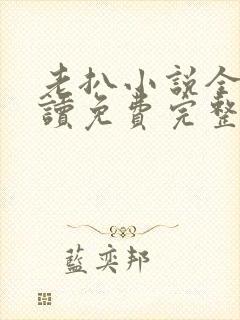 老扒小説全
讀免費完整
藍奕邦